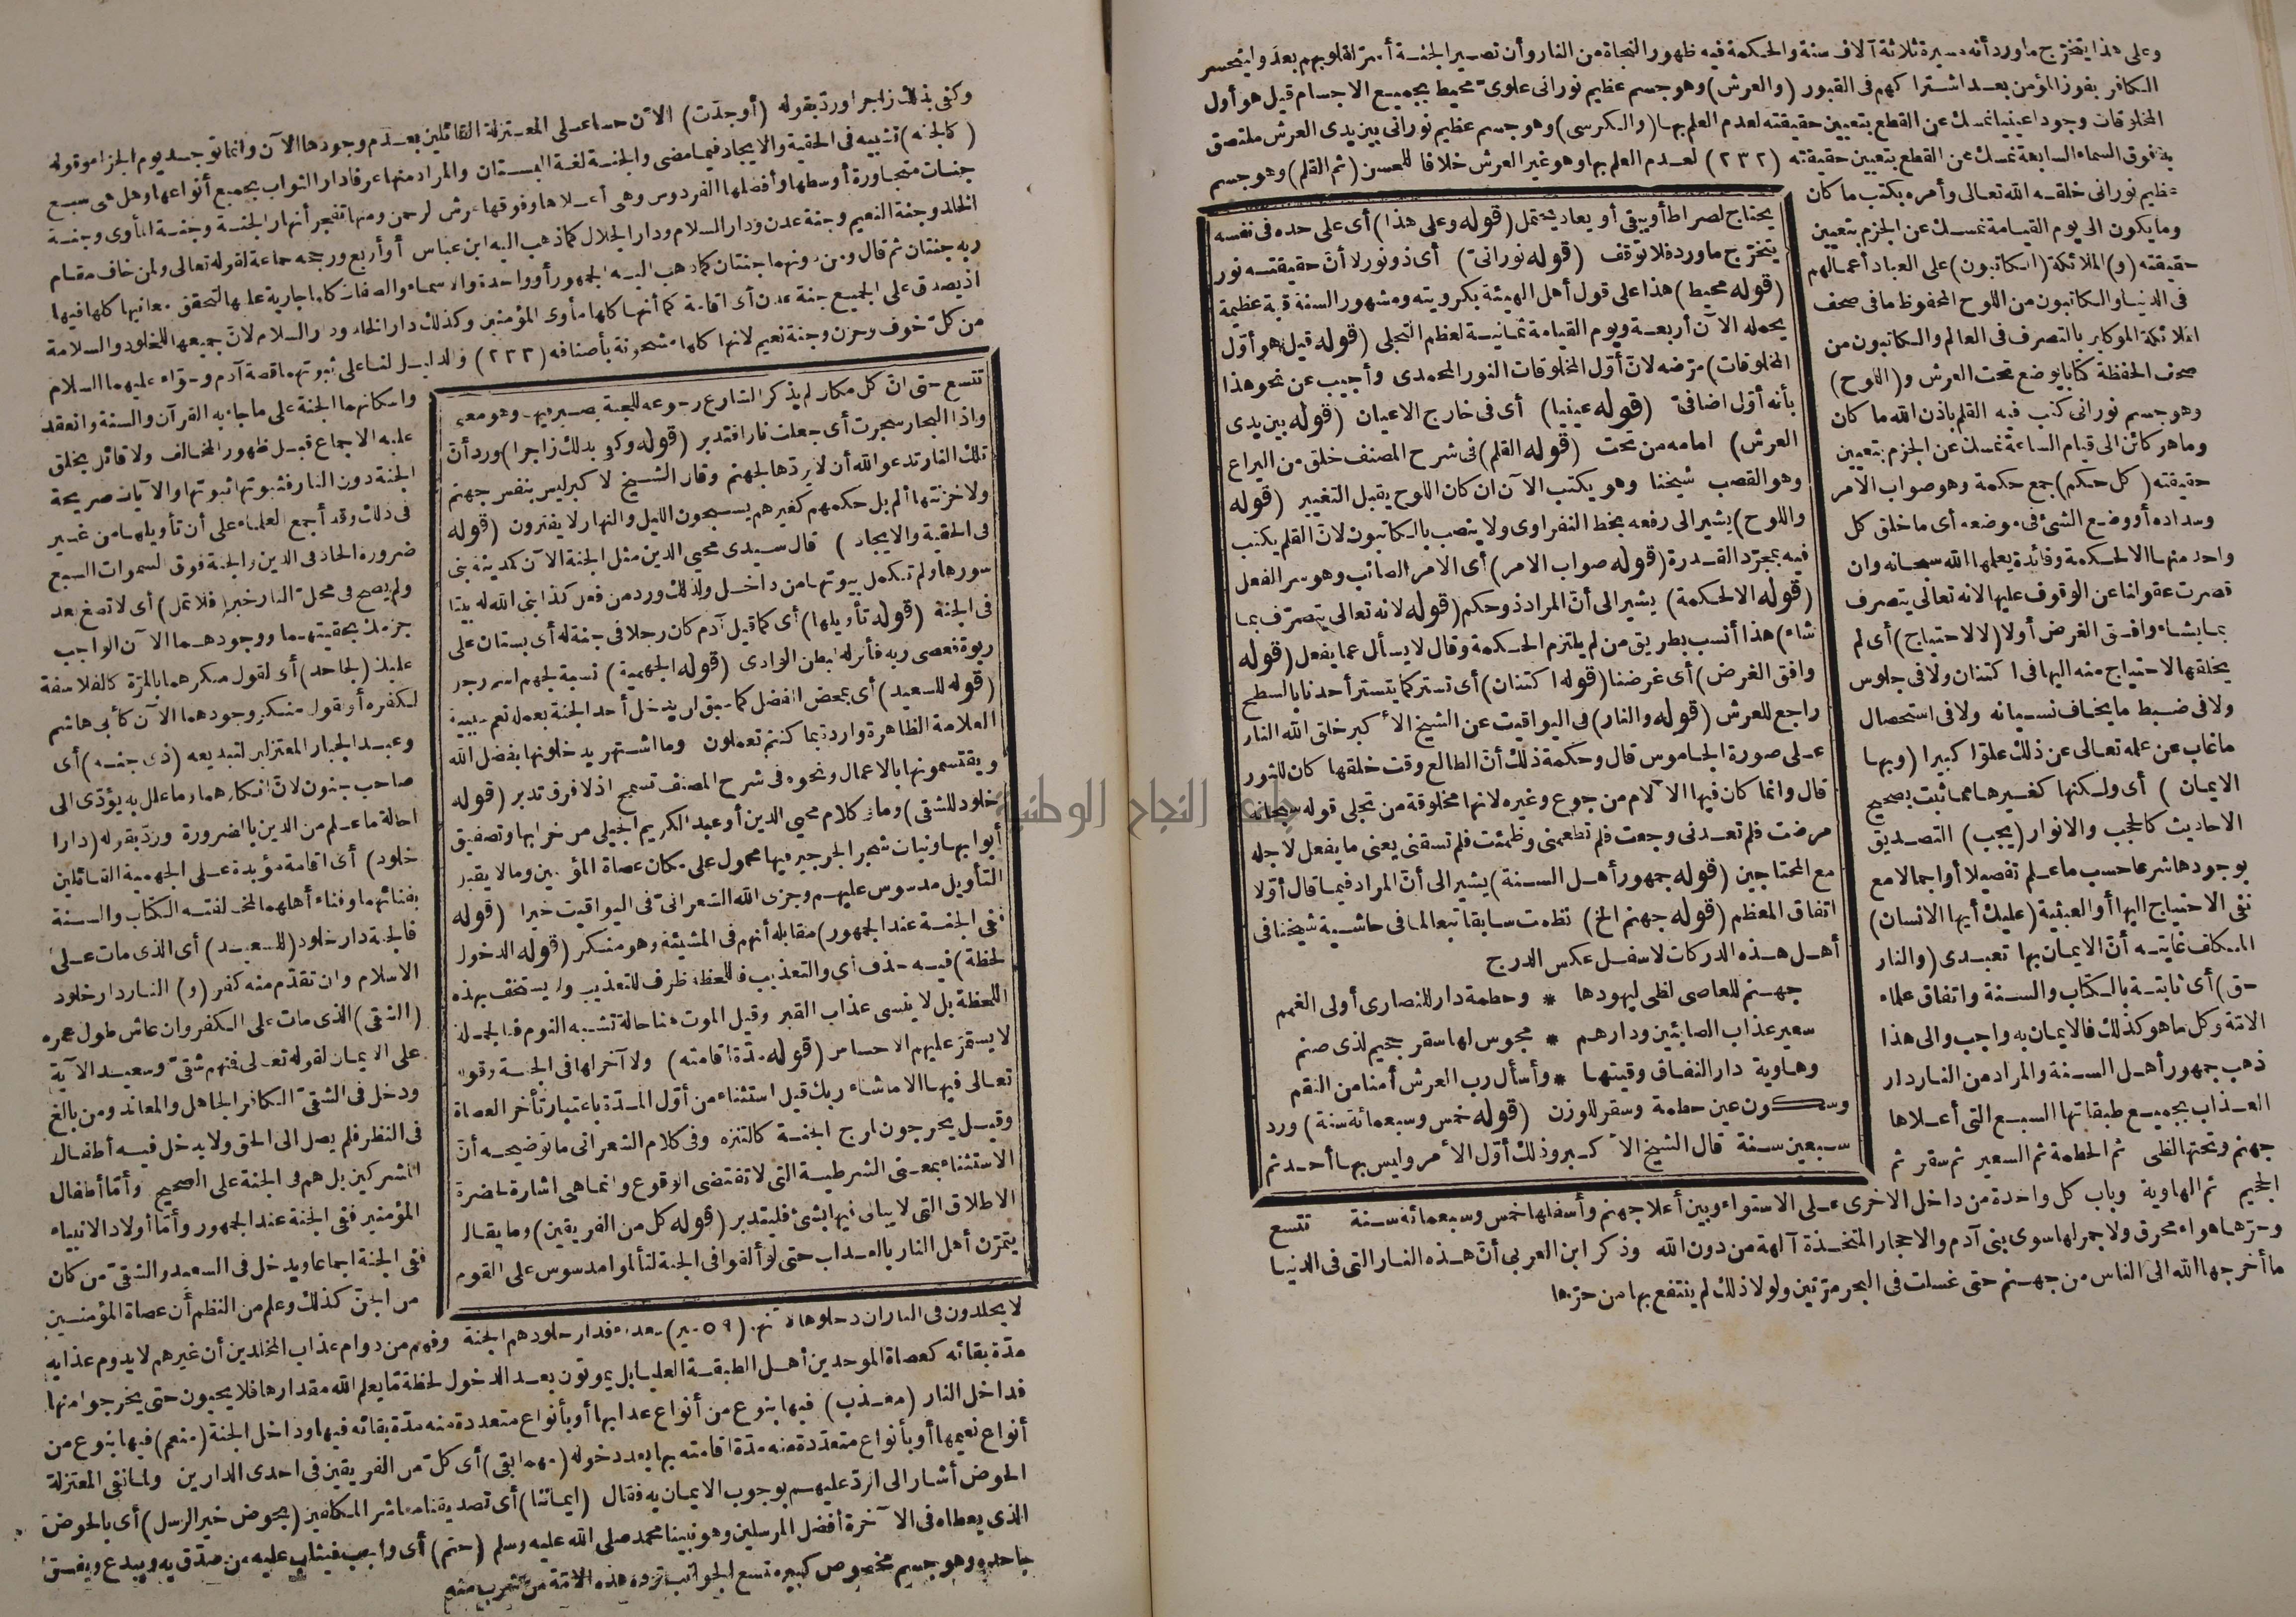 وعلى هذا يتخرج ما ورد أنه مسيرة ثلاثة آلاف سنة والحكمة فيه ظهور النجاة من النار وأن تصير الجنة أسر لقلوبهم بعد وليتحسر
الكافر بفوز المؤمن بعد اشتراكهم فى القبور (والعرش) وهو جسم عظيم نورانى علوى محيط بجميع الاجسام قيل هو أول
المخلوقات وجودا عينيا نمسك عن القطع بتعيين حقيقته لعدم العلم بها (والكرسى) وهو جسم عظيم نورانى بين يدى العرش ملتصق
به فوق السماء السابعة نمسك عن القطع بتعيين حقيقته (٢٣٢) لعدم العلم بها وهو غير العرش خلافا للحسن (ثم القلم) وهو جسم
عظيم نورانى خلقه الله تعالى وأمره بكتب ما كان
وما يكون الى يوم القيامة نمسك عن الجزم بتعيين
حقيقته (و) الملائكة (الكاتبون) على العباد أعمالهم
فى الدنيا والكاتبون من اللوح المحفوظ ما فى صحف
الملائكة الموكلين بالتصرف فى العالم والكاتبون من
صحف الحفظة كتابا يوضع تحت العرش و(اللوح)
وهو جسم نورانى كتب فيه القلم باذن الله ما كان
وما هو كائن الى قيام الساعة نمسك عن الجزم بتعيين
حقيقته (كل حكم) جمع حكمة وهو صواب الامر
وسداده أو وضع الشئ فى موضعه أى ما خلق كل
واحد منها الا لحكمة وفائدة يعلمها الله سبحانه وان
قصرت عقولنا عن الوقوف عليها لانه تعالى يتصرف
بما يشاء وافق الغرض أولا (لا لاحتياج) أى لم
يخلقها لاحتياج منه اليها فى اكتنان ولا فى جلوس
ولا فى ضبط ما يخاف نسيانه ولا فى استحصال
ما غاب عن علمه تعالى عن ذلك علوا كبيرا (وبها
الايمان) أى ولكنها كغيرها مما ثبت بصحيح
الاحاديث كالحجب والانوار (يجب) التصديق
بوجودها شرعا حسب ما علم تفصيلا أو اجمالا مع
نفى الاحتياج اليها أو العبثية (عليك أيها الانسان)
المكلف غايته أن الايمان بها تعبدى (والنار
حق) أى ثابتة بالكتاب والسنة واتفاق علماء
الامة وكل ما هو كذلك فالايمان به واجب والى هذا
ذهب جمهور أهل السنة والمراد من النار دار
العذاب بجميع طبقاتها السبع التى أعلاها
جهنم وتحتها لظى ثم الحطمة ثم السعير ثم سقر ثم
الجحيم ثم الهاوية وباب كل واحدة من داخل الاخرى على الاستواء وبين أعلا جهنم وأسفلها خمس وسبعمائة سنة تتسع
وحرها هواء محرق ولا جمر لها سوى بنى آدم والاحجار المتخذة آلهة من دون الله وذكر ابن العربى أن هذه النار التى فى الدنيا
ما أخرجها الله الى الناس من جهنم حتى غسلت فى البحر مرتين ولولا ذلك لم ينتفع بها من حرها
يحتاج لصراط أو يبقى أو يعاد يحتمل (قوله وعلى هذا) أى على حده فى نفسه
يتخرج ما ورد فلا توقف (قوله نورانى) أى ذو نور لا أن حقيقته نور
(قوله محيط) هذا على قول أهل الهيئة بكرويته ومشهور السنة قبة عظيمة
يحمله الآن أربعة ويوم القيامة ثمانية لعظم التجلى (قوله قيل هو أول
المخلوقات) مرضه لان أول المخلوقات النور المحمدى وأجيب عن نحو هذا
بأنه أول اضافى (قوله عينيا) أى فى خارج الاعيان (قوله بين يدى
العرش) امامه من تحت (قوله القلم) فى شرح المصنف خلق من اليراع
وهو القصب شيخنا وهو يكتب الآن ان كان اللوح يقبل التغيير (قوله
واللوح) يشير الى رفعه بخط النفراوى ولا ينصب بالكاتبون لان القلم يكتب
فيه بمجرد القدرة (قوله صواب الامر) أى الامر الصائب وهو سر الفعل
(قوله الا لحكمة) يشير الى أن المراد ذو حكم (قوله لانه تعالى يتصرف بما
شاء) هذا أنسب بطريق من لم يلتزم الحكمة وقال لا يسأل عما يفعل (قوله
وافق الغرض) أى غرضنا (قوله اكتنان) أى تستر كما يتستر أحدنا بالسطح
راجع للعرش (قوله والنار) فى اليواقيت عن الشيخ الأكبر خلق الله النار
على صورة الجاموس قال وحكمة ذلك أن الطالع وقت خلقها كان للثور
قال وانما كان فيها الآلام من جوع وغيره لانها مخلوقة من تجلى قوله سبحانه
مرضت فلم تعدنى وجعت فلم تطعمنى وظمئت فلم تسقنى يعنى ما يفعل لاجله
مع المحتاجين (قوله جمهور أهل السنة) يشير الى أن المراد فيما قال أولا
اتفاق المعظم (قوله جهنم الخ) نظمت سابقا تبعا لما فى حاشية شيخنا فى
أهل هذه الدركات لاسفل عكس الدرج
جهنم للعاصى لظى ليهودها * وحطمة دار للنصارى أولى الغمم
سعير عذاب الصابئين ودارهم * مجوس لها سقر جحيم لذى صنم
وهاوية دار النفاق وقيتها * وأسأل رب العرش أمنا من النقم
وسكون عين حطمة وسقر للوزن (قوله خمس وسبعمائة سنة) ورد
سبعين سنة قال الشيخ الاكبر وذلك أول الأمر وليس بها أحد ثم
وكفى بذلك زاجرا ورد بقوله (أوجدت) الآن حسا على المعتزلة القائلين بعدم وجودها الآن وانما توجد يوم الجزاء وقوله
(كالجنة) تشبيه فى الحقية والايجاد فيما مضى والجنة لغة البستان والمراد منها عرفا دار الثواب بجميع أنواعها وهل هى سبع
جنات متجاورة أوسطها وأفضلها الفردوس وهى أعلاها وفوقها عرش الرحمن ومنها تتفجر أنهار الجنة وجنة المأوى وجنة
الخلد وجنة النعيم وجنة عدن ودار السلام ودار الجلال كما ذهب اليه ابن عباس أو أربع ورجحه جماعة لقوله تعالى ولمن خاف مقام
ربه جنتان ثم قال ومن دونهما جنتان كما ذهب اليه الجمهور أو واحدة والاسماء والصفات كلها جارية عليها لتحقق معانيها كلها فيها
اذ يصدق على الجميع جنة عدن أى اقامة كما أنها كلها مأوى المؤمنين وكذلك دار الخلود ودار السلام لان جميعها للخلود والسلامة
من كل خوف وحزن وجنة نعيم لانها كلها مشحونة بأصنافه (٢٣٣) والدليل لنا على ثبوتها قصة آدم وحواء عليهما السلام
واسكانهما الجنة على ما جاء به القرآن والسنة وانعقد
عليه الاجماع قبل ظهور المخالف ولا قائل بخلق
الجنة دون النار فثبوتها ثبوتها والآيات صريحة
فى ذلك وقد أجمع العلماء على أن تأويلها من غير
ضرورة الحاد فى الدين والجنة فوق السموات السبع
ولم يصح فى محل النار خبر (فلا تمل) أى لا تصغ بعد
جزمك بحقيتهما ووجودهما الآن الواجب
عليك (لجاحد) أى لقول منكرهما بالمرة كالفلاسفة
لكفره أو لقول منكر وجودهما الآن كأبى هاشم
وعبد الجبار المعتزليين لتبديعه (ذى جنة) أى
صاحب جنون لان انكارهما وما علل به يؤدى الى
احالة ما علم من الدين بالضرورة ورد بقوله (دارا
خلود) أى اقامة مؤبدة على الجهمية القائلين
بفنائهما وفناء أهلهما لمخالفته الكتاب والسنة
فالجنة دار خلود (للسعيد) أى الذى مات على
الاسلام وان تقدم منه كفر (و) النار دار خلود
(الشقى) الذى مات على الكفر وان عاش طول عمره
على الايمان لقوله تعالى فمنهم شقى وسعيد الآية
ودخل فى الشقى الكافر الجاهل والمعاند ومن بالغ
فى النظر فلم يصل الى الحق ولا يدخل فيه أطفال
المشركين بل هم فى الجنة على الصحيح وأما أطفال
المؤمنين ففى الجنة عند الجمهور وأما أولاد الانبياء
ففى الجنة اجماعا ويدخل فى السعيد والشقى من كان
من الجن كذلك وعلم من النظم أن عصاة المؤمنين
تتسع حتى ان كل مكان لم يذكر الشارع رجوعه للجنة يصير فيها وهو معنى
واذا البحار سجرت أى جعلت نارا فتدبر (قوله وكفى بذلك زاجرا) ورد أن
تلك النار تدعو الله أن لا يردها لجهنم وقال الشيخ الاكبر ليس بنفس جهنم
ولا خزنتها ألم بل حكمهم كغيرهم يسبحون الليل والنهار لا يفترون (قوله
فى الحقية والايجاد) قال سيدى محيي الدين مثل الجنة الآن كمدينة بنى
سورها ولم تكمل بيوتها من داخل ولذلك ورد من فعل كذا بنى الله له بيتا
فى الجنة (قوله تأويلها) أى كما قيل آدم كان رجلا فى جنة له أى بستان على
ربوة فعصى ربه فأنزله لبطن الوادى (قوله الجهمية) نسبة لجهم اسم رجل
(قوله للسعيد) أى بمحض الفضل كما سبق لن يدخل أحد الجنة بعمله نعم سببية
العلامة الظاهرة واردة بما كنتم تعملون وما اشتهر يدخلونها بفضل الله
ويقتسمونها بالاعمال ونحوه فى شرح المصنف تسمح اذ لا فرق تدبر (قوله
خلود للشقى) وما فى كلام محيي الدين أو عبد الكريم الجيلى من خرابها وتصفيق
أبوابها ونبات شجر الجرجير فيها محمول على مكان عصاة المؤمنين وما لا يقبل
التأويل مدسوس عليهم وجزى الله الشعرانى فى اليواقيت خيرا (قوله
ففى الجنة عند الجمهور) مقابله أنهم فى المشيئة وهو منكر (قوله الدخول
لحظة) فيه حذف أى والتعذيب فلحظة ظرف للتعذيب ولا يستخف بهذه
اللحظة بل لا ينسى عذاب القبر وقيل الموت هنا حالة تشبه النوم فبالجملة
لا يستمر عليهم الاحساس (قوله مدة اقامته) ولا آخر لها فى الجنة وقوله
تعالى فيها الا ما شاء ربك قيل استثناء من أول المدة باعتبار تأخر العصاة
وقيل يخرجون لمرج الجنة كالتنزه وفى كلام الشعرانى ما توضيحه أن
الاستثناء بمعنى الشرطية التى لا تقتضى الوقوع وانما هى اشارة لحضرة
الاطلاق التى لا يبالى فيها بشئ فليتدبر (قوله كل من الفريقين) وما يقال
يتمرن أهل النار بالعذاب حتى لو ألقوا فى الجنة لتألموا مدسوس على القوم
لا يخلدون فى النار ان دخلوها لانهم (٥٩ ير) بعد مقدار خلودهم الجنة وفهم من دوام عذاب المخلدين أن غيرهم لا يدوم عذابه
مدة بقائه كعصاة الموحدين أهل الطبقة العليا بل يموتون بعد الدخول لحظة ما يعلم الله مقدارها فلا يحيون حتى يخرجوا منها
فداخل النار (معذب) فيها بنوع من أنواع عذابها أو بأنواع متعددة منه مدة بقائه فيها وداخل الجنة (منعم) فيها بنوع من
أنواع نعيمها أو بأنواع متعددة منه مدة اقامته بها بعد دخوله (مهما بقى) أى كل من الفريقين فى احدى الدارين ولما نفى المعتزلة
الحوض أشار الى الرد عليهم بوجوب الايمان به فقال (ايماننا) أى تصديقنا معاشر المكلفين (بحوض خير الرسل) أى بالحوض
الذى يعطاه فى الآخرة أفضل المرسلين وهو نبينا محمد صلى الله عليه وسلم (حتم) أى واجب فيثاب عليه من صدق به ويبدع ويفسق
جاحده وهو جسم مخصوص كبير متسع الجوانب ترده هذه الامة من شرب منه
جامعة النجاح الوطنية